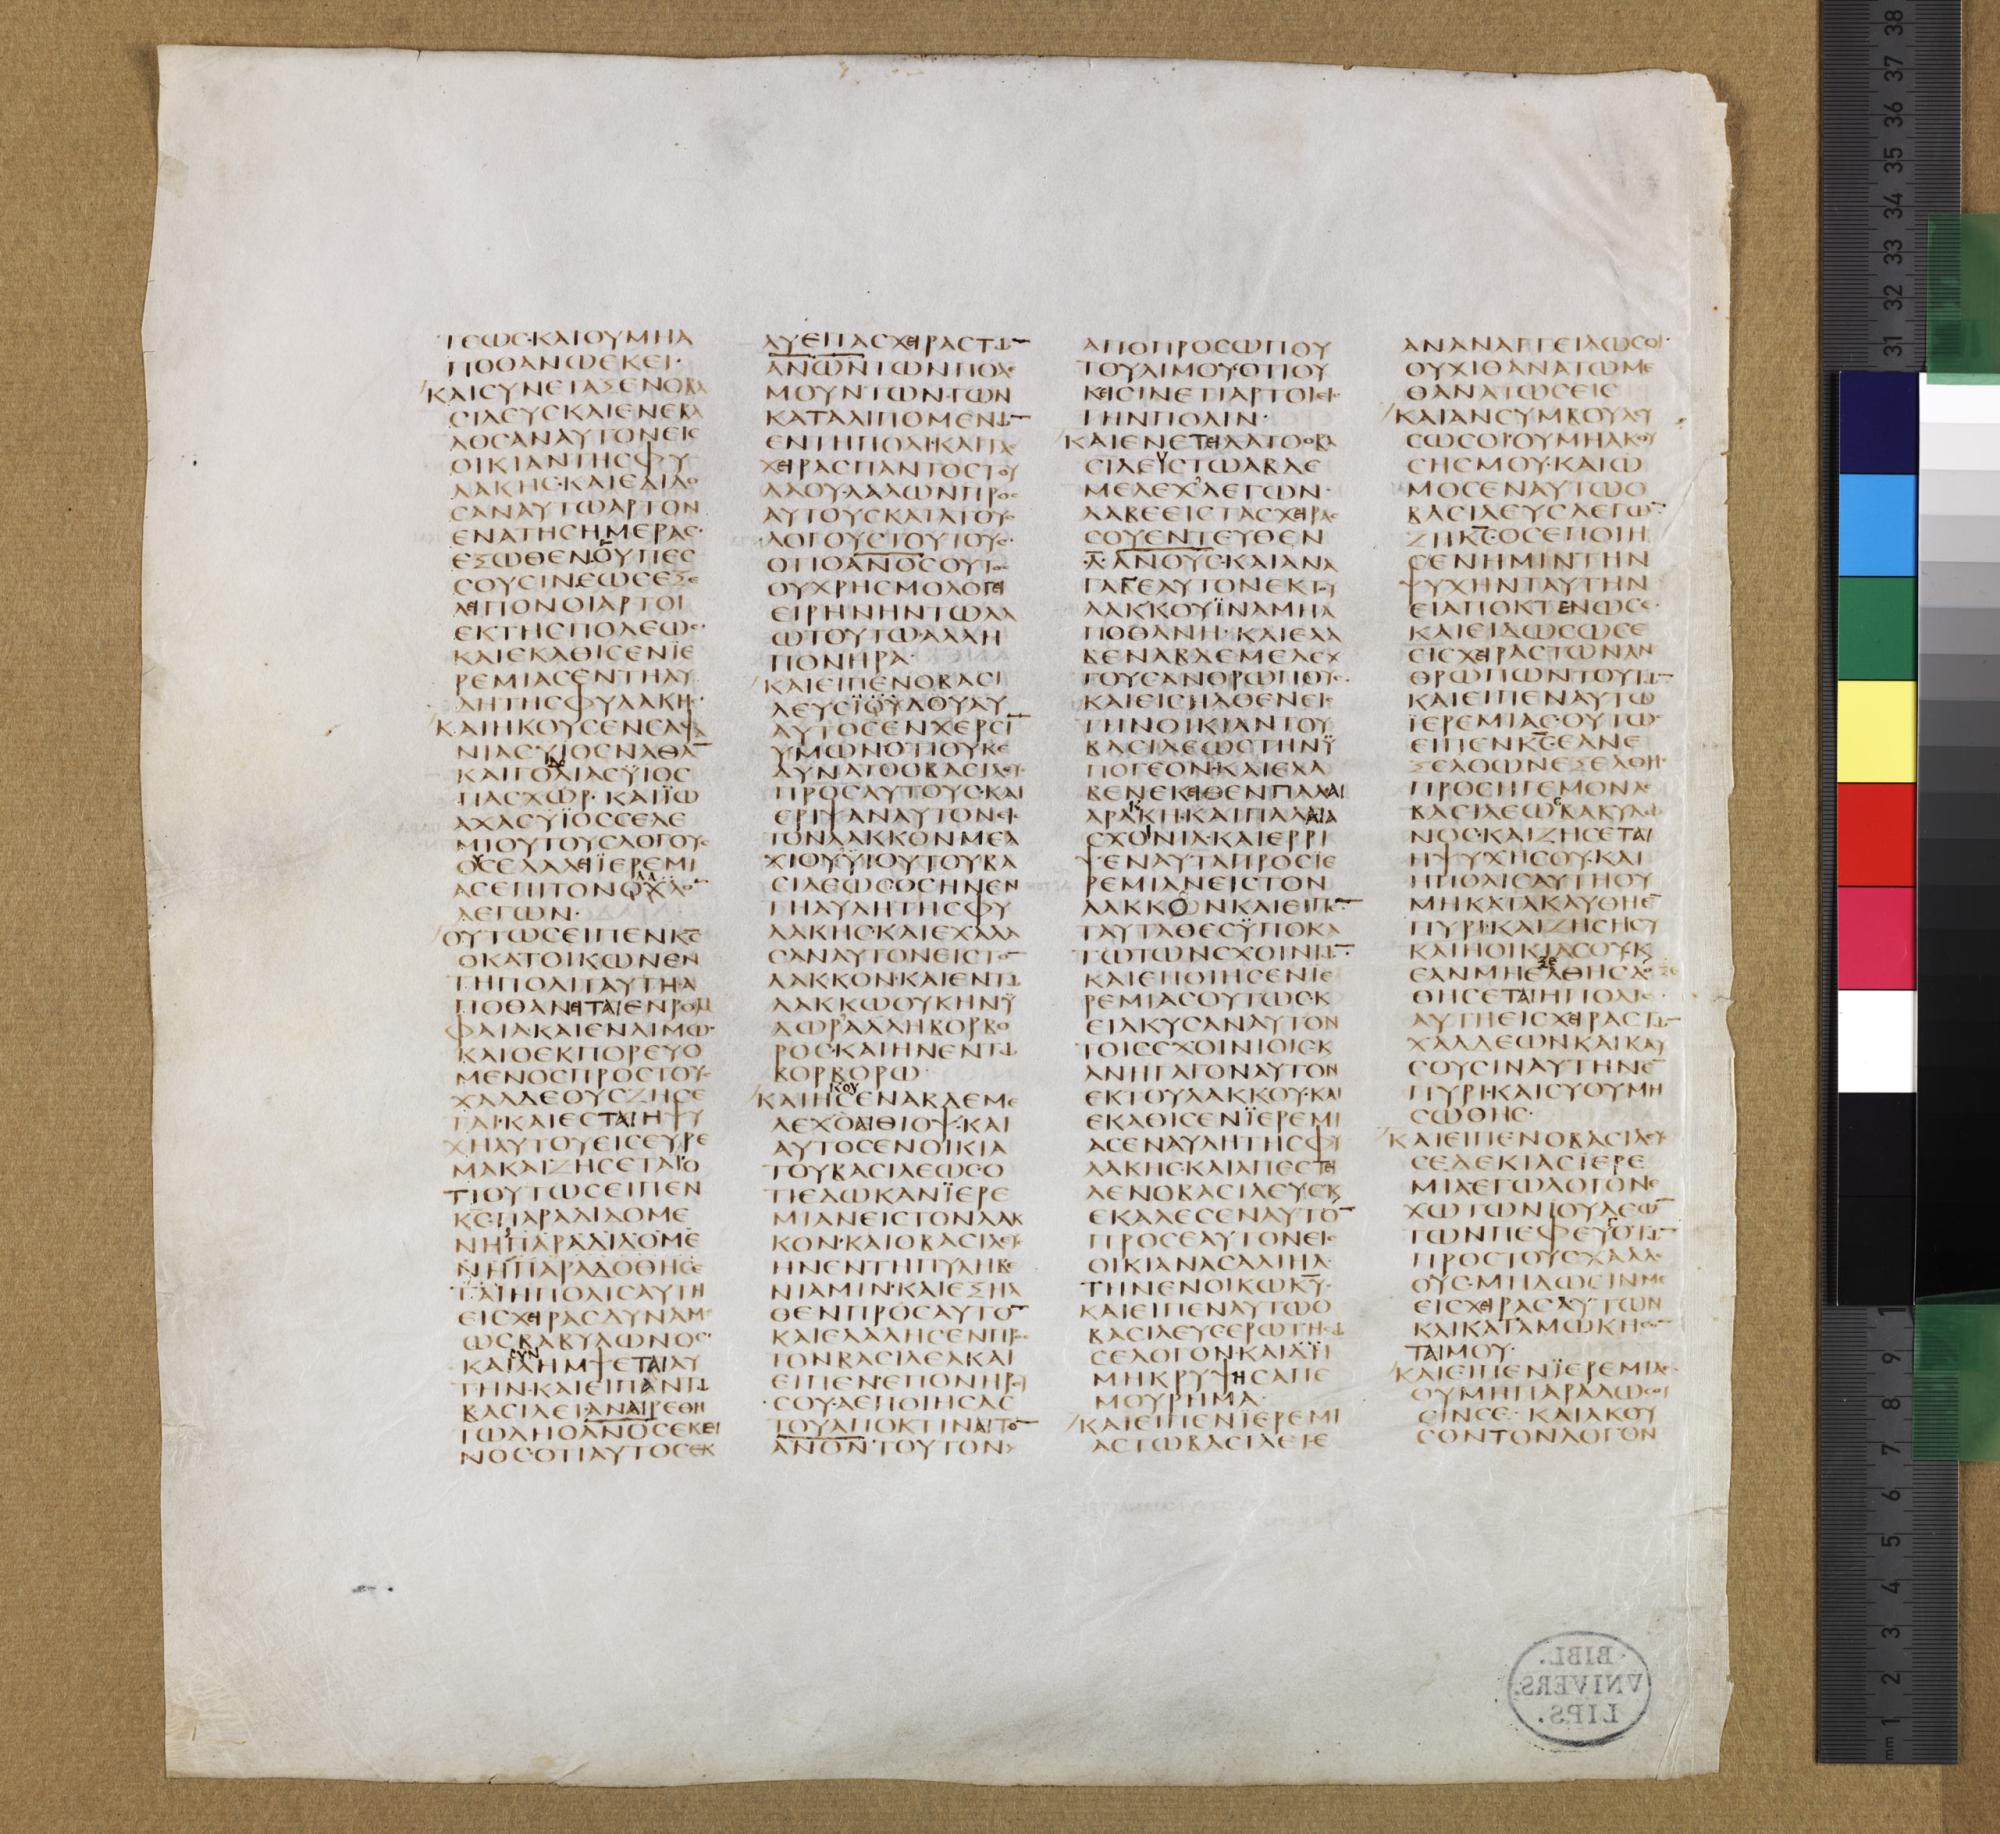 ΤΕΩϹ·ΚΑΙΟΥΜΗΑ
ΠΟΘΑΝΩΕΚΕΙ·
ΚΑΙϹΥΝΕΤΑΞΕΝΟΒΑ
ϹΙΛΕΥϹΚΑΙΕΝΕΒΑ
ΛΟϹΑΝΑΥΤΟΝΕΙϹ
ΟΙΚΙΑΝΤΗϹΦΥ
ΛΑΚΗϹ·ΚΑΙΕΔΙΔΟ
ϹΑΝΑΥΤΩΑΡΤΟΝ
ΕΝΑΤΗϹΗΜΕΡΑϹ·
ΕΞΩΘΕΝΟΥΠΕϹ
ϹΟΥϹΙΝΕΩϹΕΞΕ
ΛΕΙΠΟΝΟΙΑΡΤΟΙ
ΕΚΤΗϹΠΟΛΕΩϹ·
ΚΑΙΕΚΑΘΙϹΕΝΪΕ
ΡΕΜΙΑϹΕΝΤΗΑΥ
ΛΗΤΗϹΦΥΛΑΚΗϹ·
ΚΑΙΗΚΟΥϹΕΝϹΑΦΑ
ΝΙΑϹΥΙΟϹΝΑΘΑ̅
ΚΑΙΓΟΔΙΑϹΫΙΟϹ
ΠΑϹΧΩΡ·ΚΑΙΪΩ
ΑΧΑϹΥΪΟϹϹΕΛΕ
ΜΙΟΥΤΟΥϹΛΟΓΟΥϹ
ΟϹΕΛΑΛΕΙΪΕΡΕΜΙ
ΑϹΕΠΙΤΟΝΟΧΛΟ̅
ΛΕΓΩΝ·
ΟΥΤΩϹΕΙΠΕΝΚ̅Ϲ̅
ΟΚΑΤΟΙΚΩΝΕΝ
ΤΗΠΟΛΙΤΑΥΤΗΑ
ΠΟΘΑΝΕΙΤΑΙΕΝΡΟΜ
ΦΑΙΑΚΑΙΕΝΛΙΜΩ·
ΚΑΙΟΕΚΠΟΡΕΥΟ
ΜΕΝΟϹΠΡΟϹΤΟΥϹ
ΧΑΛΔΕΟΥϹΖΗϹΕ
ΤΑΙ·ΚΑΙΕϹΤΑΙΗΨΥ
ΧΗΑΥΤΟΥΕΙϹΕΥΡΕ
ΜΑΚΑΙΖΗϹΕΤΑΙΟ
ΤΙΟΥΤΩϹΕΙΠΕΝ
Κ̅Ϲ̅·ΠΑΡΑΔΙΔΟΜΕ
ΝΗΠΑΡΑΔΙΔΟΜΕ
ΝΗΠΑΡΑΔΟΘΗϹΕ
ΤΑΙΗΠΟΛΙϹΑΥΤΗ
ΕΙϹΧΕΙΡΑϹΔΥΝΑΜΕ
ΩϹΒΑΒΥΛΩΝΟϹ·
ΚΑΙΛΗΜΨΕΤΑΙΑΥ
ΤΗΝ·ΚΑΙΕΙΠΑΝΤΩ
ΒΑϹΙΛΕΙ·ΑΝΑΙΡΕΘΗ
ΤΩΔΗΟΑΝΟϹΕΚΕΙ
ΝΟϹΟΤΙΑΥΤΟϹΕΚ
ΛΥΕΙΤΑϹΧΕΙΡΑϹΤΩ̅
ΑΝΩΝΤΩΝΠΟΛΕ
ΜΟΥΝΤΩΝ·ΤΩΝ
ΚΑΤΑΛΙΠΟΜΕΝΩ̅
ΕΝΤΗΠΟΛΙ·ΚΑΙΤΑϹ
ΧΕΙΡΑϹΠΑΝΤΟϹΤΟΥ
ΛΑΟΥ·ΛΑΛΩΝΠΡΟϹ
ΑΥΤΟΥϹΚΑΤΑΤΟΥϹ
ΛΟΓΟΥϹΤΟΥΤΟΥϹ·
ΟΤΙΟΑΝΟϹΟΥΤΟϹ
ΟΥΧΡΗϹΜΟΛΟΓΕΙ
ΕΙΡΗΝΗΝΤΩΛΑ
ΩΤΟΥΤΩ·ΑΛΛΗ
ΠΟΝΗΡΑ·
ΚΑΙΕΙΠΕΝΟΒΑϹΙ
ΛΕΥϹΪΔΟΥΑΥ
ΑΥΤΟϹΕΝΧΕΡϹΪ̅
ΥΜΩΝΟΤΙΟΥΚΕ
ΔΥΝΑΤΟΟΒΑϹΙΛΕΥϹ
ΠΡΟϹΑΥΤΟΥϹ·ΚΑΙ
ΕΡΙΨΑΝΑΥΤΟΝΕΙϹ
ΤΟΝΛΑΚΚΟΝΜΕΛ
ΧΙΟΥΫΙΟΥΤΟΥΒΑ
ϹΙΛΕΩϹΟϹΗΝΕΝ
ΤΗΑΥΛΗΤΗϹΦΥ
ΛΑΚΗϹ·ΚΑΙΕΧΑΛΑ
ϹΑΝΑΥΤΟΝΕΙϹΤΟ̅
ΛΑΚΚΟΝ·ΚΑΙΕΝΤΩ
ΛΑΚΚΩΟΥΚΗΝΫ
ΔΩΡ᾽ΑΛΛΗΒΟΡΒΟ
ΡΟϹ·ΚΑΙΗΝΕΝΤΩ
ΒΟΡΒΟΡΩ·
ΚΑΙΗϹΕΝΑΒΔΕΜΕ
ΛΕΧΟΑΙΘΙΟΨ·ΚΑΙ
ΑΥΤΟϹΕΝΟΙΚΙΑ
ΤΟΥΒΑϹΙΛΕΩϹ·Ο
ΤΙΕΔΩΚΑΝΪΕΡΕ
ΜΙΑΝΕΙϹΤΟΝΛΑΚ
ΚΟΝ·ΚΑΙΟΒΑϹΙΛΕΥϹ
ΗΝΕΝΤΗΠΥΛΗΒΕ
ΝΙΑΜΙΝ·ΚΑΙΕΞΗΛ
ΘΕΝΠΡΟϹΑΥΤΟ̅
ΚΑΙΕΛΑΛΗϹΕΝΠΡΟϹ
ΤΟΝΒΑϹΙΛΕΑΚΑΙ
ΕΙΠΕΝ·ΕΠΟΝΗΡΕΥ
ϹΟΥ·ΑΕΠΟΙΗϹΑϹ
ΤΟΥΑΠΟΚΤΙΝΑΙΤΟ̅
ΑΝΟΝ·ΤΟΥΤΟΝ
ΑΠΟΠΡΟϹΩΠΟΥ
ΤΟΥΛΙΜΟΥ·ΟΤΙΟΥ
ΚΕΙϹΙΝΕΤΙΑΡΤΟΙΕΙϹ
ΤΗΝΠΟΛΙΝ·
ΚΑΙΕΝΕΤΕΙΛΑΤΟΟΒΑ
ϹΙΛΕΥϹΤΩΑΒΔΕ
ΜΕΛΕΧ᾽ΛΕΓΩΝ·
ΛΑΒΕΕΙϹΤΑϹΧΕΙΡΑϹ
ϹΟΥΕΝΤΕΥΘΕΝ
·Λ̅·ΑΝΟΥϹ·ΚΑΙΑΝΑ
ΓΑΓΕΑΥΤΟΝΕΚΤΟΥ
ΛΑΚΚΟΥΪΝΑΜΗΑ
ΠΟΘΑΝΗ·ΚΑΙΕΛΑ
ΒΕΝΑΒΔΕΜΕΛΕΧ
ΤΟΥϹΑΝΘΡΩΠΟΥϹ·
ΚΑΙΕΙϹΗΛΘΕΝΕΙϹ
ΤΗΝΟΙΚΙΑΝΤΟΥ
ΒΑϹΙΛΕΩϹΤΗΝΫ
ΠΟΓΕΟΝ·ΚΑΙΕΛΑ
ΒΕΝΕΚΕΙΘΕΝΠΑΛΑΙ
ΑΡΑΚΗ·ΚΑΙΠΑΛΑΙΑ
ϹΧΟΝΙΑ·ΚΑΙΕΡΡΙ
ΨΕΝΑΥΤΑΠΡΟϹΪΕ
ΡΕΜΙΑΝΕΙϹΤΟΝ
ΛΑΚΚΟΝΚΑΙΕΙΠΕ̅
ΤΑΥΤΑΘΕϹΫΠΟΚΑ
ΤΩΤΩΝϹΧΟΙΝΙΩ̅·
ΚΑΙΕΠΟΙΗϹΕΝΪΕ
ΡΕΜΙΑϹΟΥΤΩϹ·Κ
ΕΙΛΚΥϹΑΝΑΥΤΟΝ
ΤΟΙϹϹΧΟΙΝΙΟΙϹ·Κ
ΑΝΗΓΑΓΟΝΑΥΤΟΝ
ΕΚΤΟΥΛΑΚΚΟΥ·ΚΑΙ
ΕΚΑΘΙϹΕΝΪΕΡΕΜΙ
ΑϹΕΝΑΥΛΗΤΗϹΦΥ
ΛΑΚΗϹ·ΚΑΙΑΠΕϹΤΕΙ
ΛΕΝΟΒΑϹΙΛΕΥϹΚ
ΕΚΑΛΕϹΕΝΑΥΤΟ̅
ΠΡΟϹΕΑΥΤΟΝΕΙϹ
ΟΙΚΙΑΝΑϹΑΛΙΗΛ·
ΤΗΝΕΝΟΙΚΩΚ̅Υ̅·
ΚΑΙΕΙΠΕΝΑΥΤΩΟ
ΒΑϹΙΛΕΥϹΕΡΩΤΗϹΩ
ϹΕΛΟΓΟΝΚΑΙ
ΜΗΚΡΥΨΗϹΑΠΕ
ΜΟΥΡΗΜΑ·
ΚΑΙΕΙΠΕΝΪΕΡΕΜΙ
ΑϹΤΩΒΑϹΙΛΕΙ·Ε
ΑΝΑΝΑΓΓΕΙΛΩϹΟΙ·
ΟΥΧΙΘΑΝΑΤΩΜΕ
ΘΑΝΑΤΩϹΕΙϹ
ΚΑΙΑΝϹΥΜΒΟΥΛΕΥ
ϹΩϹΟΙ᾽ΟΥΜΗΑΚΟΥ
ϹΗϹΜΟΥ·ΚΑΙΩ
ΜΟϹΕΝΑΥΤΩΟ
ΒΑϹΙΛΕΥϹΛΕΓΩ̅·
ΖΗΚ̅Ϲ̅·ΟϹΕΠΟΙΗ
ϹΕΝΗΜΙΝΤΗΝ
ΨΥΧΗΝΤΑΥΤΗΝ
ΕΙΑΠΟΚΤΕΝΩϹΕ·
ΚΑΙΕΙΔΩϹΩϹΕ
ΕΙϹΧΕΙΡΑϹΤΩΝΑΝ
ΘΡΩΠΩΝΤΟΥΤΩ̅
ΚΑΙΕΙΠΕΝΑΥΤΩ
ΪΕΡΕΜΙΑϹ·ΟΥΤΩϹ
ΕΙΠΕΝΚ̅Ϲ̅·ΕΑΝΕ
ΞΕΛΘΩΝΕΞΕΛΘΗϹ
ΠΡΟϹΗΓΕΜΟΝΑϹ
ΒΑϹΙΛΕΩϹΒΑΒΥΛΩ
ΝΟϹ·ΚΑΙΖΗϹΕΤΑΙ
ΗΨΥΧΗϹΟΥ·ΚΑΙ
ΗΠΟΛΙϹΑΥΤΗΟΥ
ΜΗΚΑΤΑΚΑΥΘΗΕ̅
ΠΥΡΙ·ΚΑΙΖΗϹΗϹΥ
ΚΑΙΗΟΙΚΙΑϹΟΥ·Κ
ΕΑΝΜΗΕΛΘΗϹΔΟ
ΘΗϹΕΤΑΙΗΠΟΛΙϹ
ΑΥΤΗΕΙϹΧΕΙΡΑϹΤΩ̅
ΧΑΛΔΕΩΝΚΑΙΚΑΥ
ϹΟΥϹΙΝΑΥΤΗΝΕ̅
ΠΥΡΙ·ΚΑΙϹΥΟΥΜΗ
ϹΩΘΗϹ·
ΚΑΙΕΙΠΕΝΟΒΑϹΙΛΕΥϹ
ϹΕΔΕΚΙΑϹΪΕΡΕ
ΜΙΑ·ΕΓΩΛΟΓΟΝΕ
ΧΩΤΩΝΙΟΥΔΕΩ̅
ΤΩΝΠΕΦΕΥΓΟΤΩ̅
ΠΡΟϹΤΟΥϹΧΑΛΔΑΙ
ΟΥϹ·ΜΗΔΩϹΙΝΜΕ
ΕΙϹΧΕΙΡΑϹΑΥΤΩΝ
ΚΑΙΚΑΤΑΜΩΚΗϹΟ̅
ΤΑΙΜΟΥ·
ΚΑΙΕΙΠΕΝΪΕΡΕΜΙΑϹ·
ΟΥΜΗΠΑΡΑΔΩϹΟΥ
ϹΙΝϹΕ·ΚΑΙΑΚΟΥ
ϹΟΝΤΟΝΛΟΓΟΝ
BIBL.
VNIVERS.
LIPS.